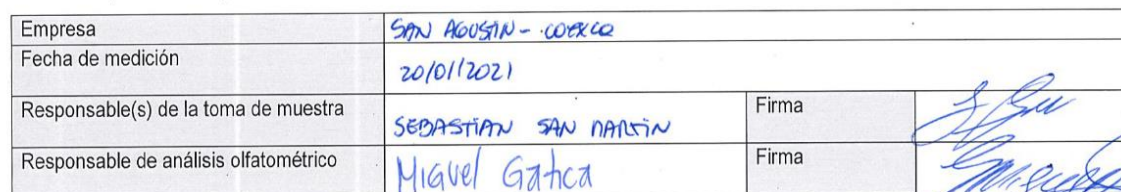 Empresa SAN AGUSTIN - COEXCA
Fecha de medición 20/01/2021
Responsable(s) de la toma de muestra SEBASTIAN SAN MARTIN Firma
Responsable de análisis olfatométrico Miguel Gatica Firma